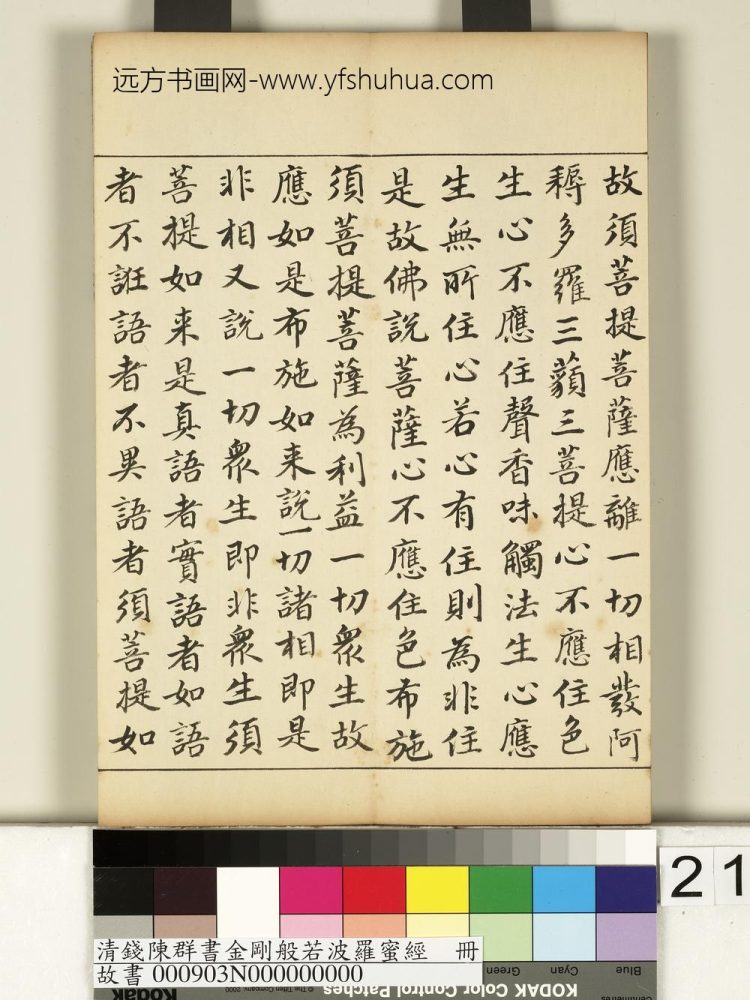 远方书画网-www.yfshuhua.com
故須菩提菩薩應離一切相發阿
耨多羅三藐三菩提心不應住色
生心不應住聲香味觸法生心應
生無所住心若心有住則為非住
是故佛說菩薩心不應住色布施
須菩提菩薩為利益一切衆生故
應如是布施如来說一切諸相即是
非相又說一切衆生即非衆生須
菩提如来是真語者實語者如語
者不誑語者不異語者須菩提如
21
清錢陳群書金剛般若波羅蜜經 冊
故書 000903N000000000
Blue
Cyan
Green
KODAK Color Control Patches
© The Tiffen Company, 2000
Centimetres